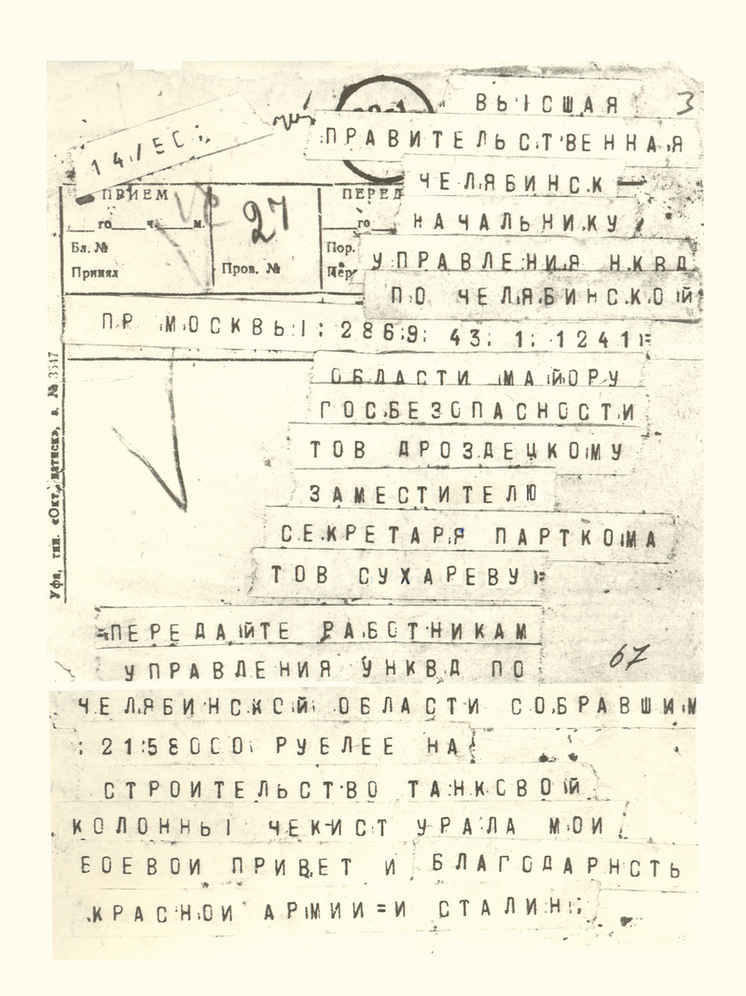 ВЫСШАЯ 3
14/ЕС:
ПРАВИТЕЛЬСТВЕННАЯ
ЧЕЛЯБИНСК —
ПРИЕМ
го ч. м.
Бл. №
Принял
27
Пров. №
ПЕРЕД
го
Пор.
Пер
НАЧАЛЬНИКУ
УПРАВЛЕНИЯ НКВД
ПО ЧЕЛЯБИНСКОЙ
ПР МОСКВЫ: 2869: 43: 1: 1241=
ОБЛАСТИ МАЙОРУ
ГОСБЕЗОПАСНОСТИ
ТОВ ДРОЗДЕЦКОМУ
ЗАМЕСТИТЕЛЮ
СЕКРЕТАРЯ ПАРТКОМА
ТОВ СУХАРЕВУ=
=ПЕРЕДАЙТЕ РАБОТНИКАМ
67
УПРАВЛЕНИЯ УНКВД ПО
ЧЕЛЯБИНСКОЙ ОБЛАСТИ СОБРАВШИМ
: 2158000: РУБЛЕЕ НА
СТРОИТЕЛЬСТВО ТАНКОВОЙ
КОЛОННЫ ЧЕКИСТ УРАЛА МОИ
БОЕВОИ ПРИВЕТ И БЛАГОДАРНСТЬ
КРАСНОИ АРМИИ=И СТАЛИН:
Уфа, тип. «Окт. натиск», з. № 3517